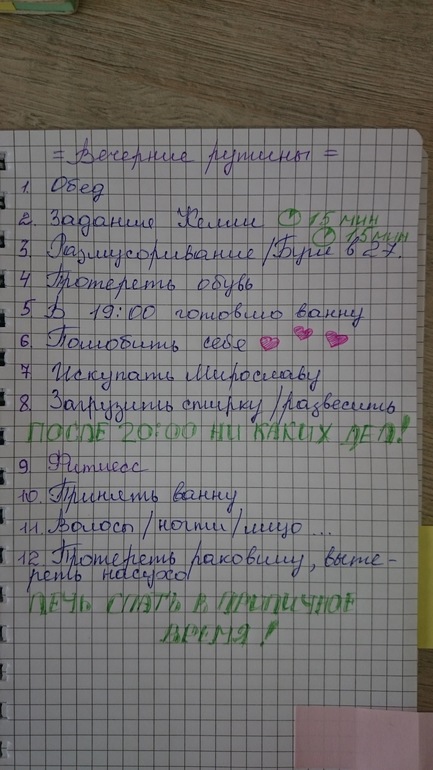 = Вечерние рутины =
1. Обед
2. Задание Келли 15 мин
15 мин
3. Размусоривание/Буги в 27.
4 Протереть обувь
5 В 19:00 готовлю ванну
6. Полюбить себя
7 Искупать Мирославу
8. Загрузить стирку/развесить
ПОСЛЕ 20:00 НИ КАКИХ ДЕЛ!
9. Фитнесс
10. Принять ванну
11. Волосы/ногти/лицо ...
12. Протереть раковину, выте-
реть насухо
ЛЕЧЬ СПАТЬ В ПРИЛИЧНОЕ
ВРЕМЯ!